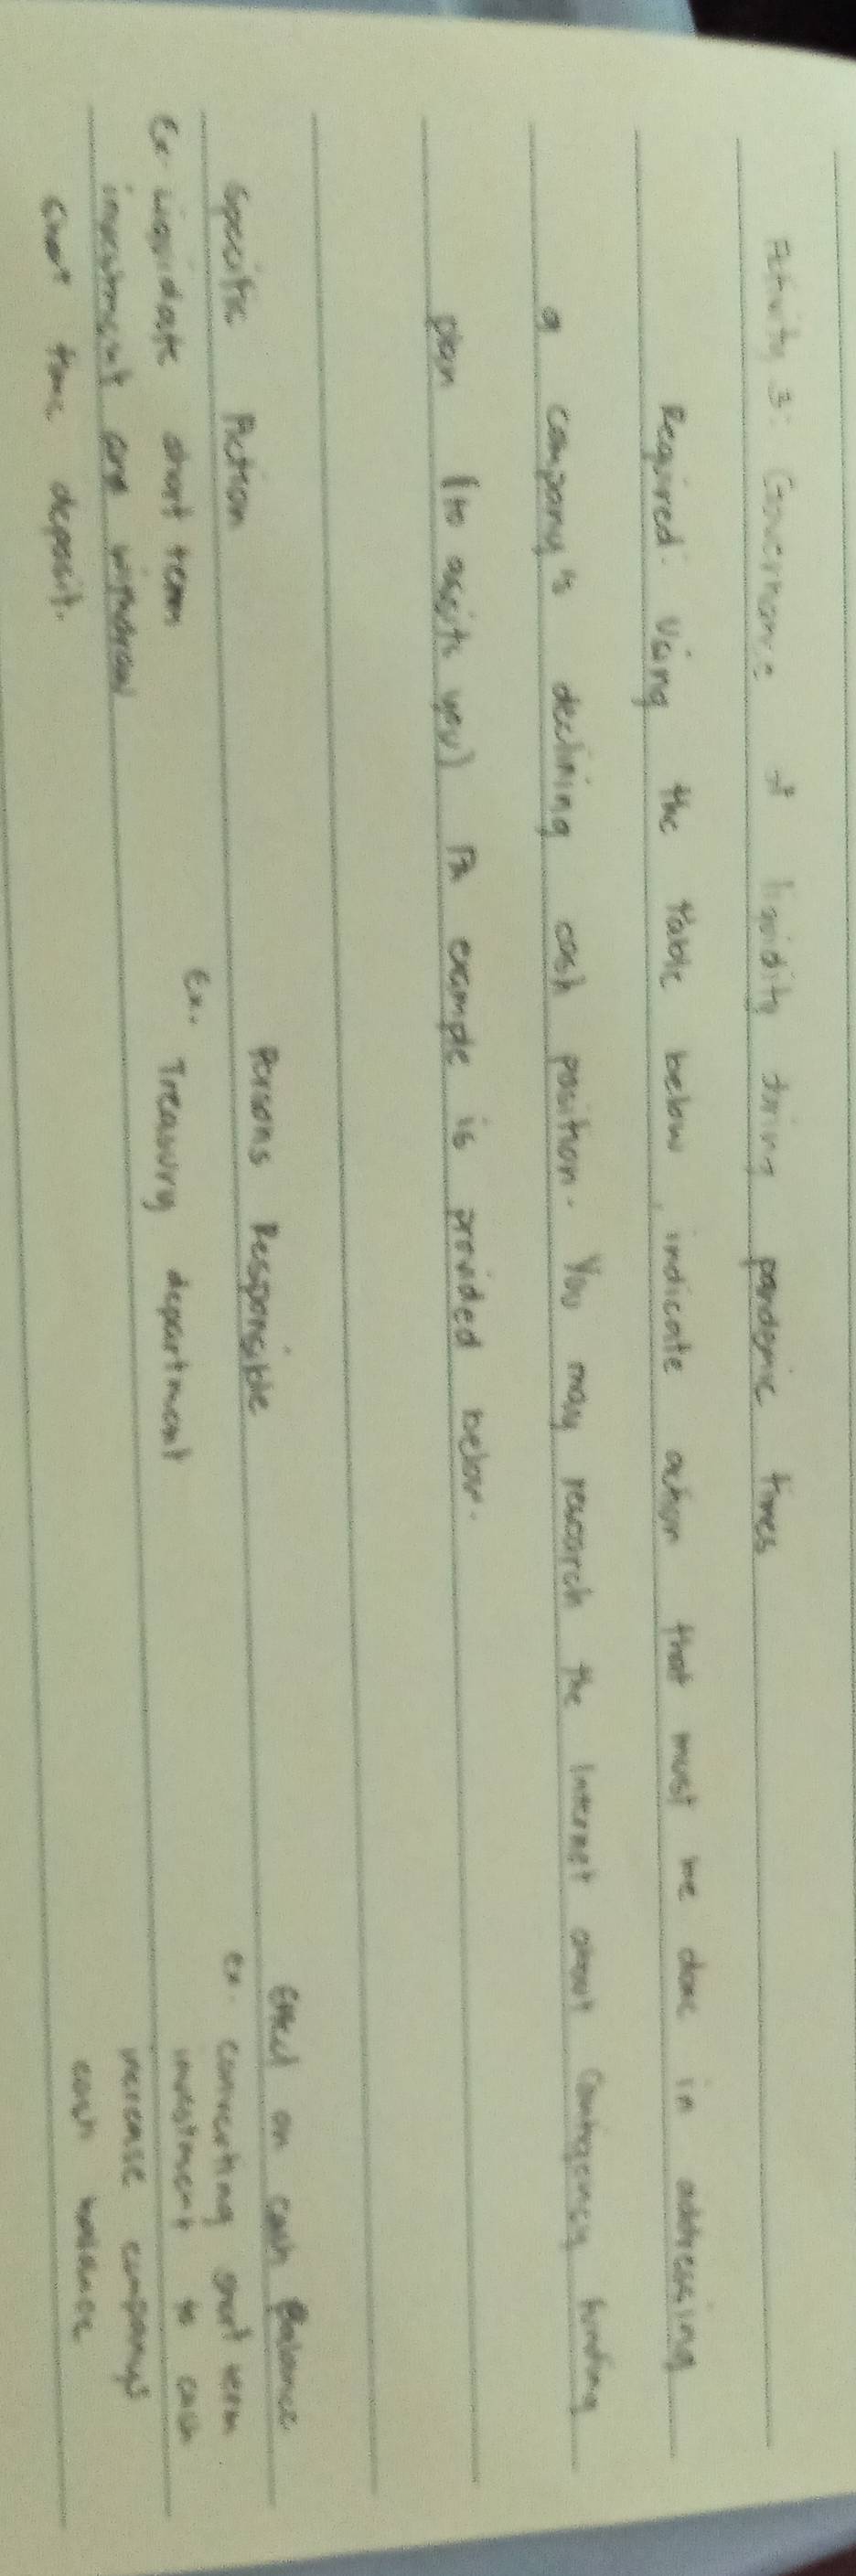 Activity 3: Governance of liquidity during pandemic times
Required: Using the table below, indicate action that must be done in addressing
a company's declining cash position. You may research the Internet about Contingency funding
plan (to assits you) An example is provided below.
Specific Action Persons Responsible Effect on cash Balance
Ex. Liquidate short term investment and withdraw short time deposit.
Ex. Treasury department
ex. converting short term investment to cash increase company's cash balance